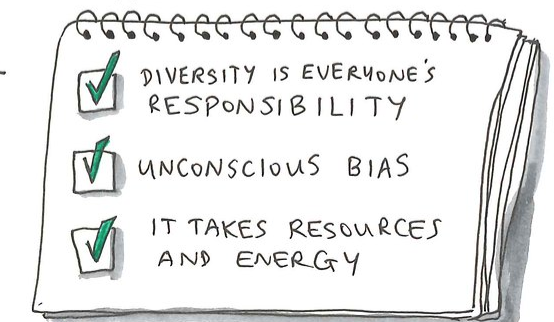 DIVERSITY IS EVERYONE'S
RESPONSIBILITY
UNCONSCIOUS BIAS
IT TAKES RESOURCES
AND ENERGY